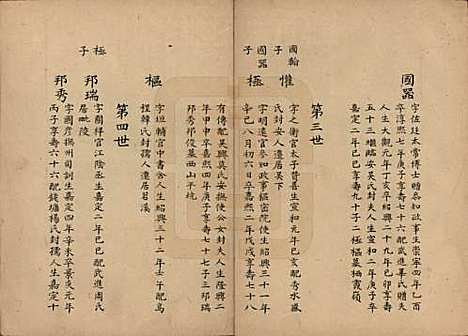 國器
字佐廷太常博士贈參知政事生崇寧四年乙酉
卒淳熙七年庚子享壽七十六配武進單氏贈夫
人生大觀元年丁亥卒紹興二十九年己卯享壽
五十三繼臨安吳氏封夫人生宣和二年庚子卒
嘉定二年己巳享壽九十子二極樞墓棲霞嶺
第三世
國翰子
惟
字之衛官太子贊善生宣和元年己亥配秀水臧
氏封安人遷居吳下
國器子
極
字明遠官參知政事樞密院使生紹興三十一年
辛巳八月初六日卒嘉熙二年戊戌享壽七十八
有傳配吳興莫氏安撫使公女封夫人生隆興二
年甲申卒嘉熙四年庚子享壽七十七子三邦瑞
邦秀邦俊墓西山平坑
樞
字垣輔官中書舍人生紹興三十二年壬午配烏
程韓氏封孺人遷居苕溪
第四世
極子
邦瑞
字國祥官江陰丞生嘉定二年己巳配武進周氏
居毗陵
邦秀
字國彥撫州司訓生嘉定四年辛未卒景炎元年
丙子享壽六十六配錢塘楊氏封孺人生嘉定十